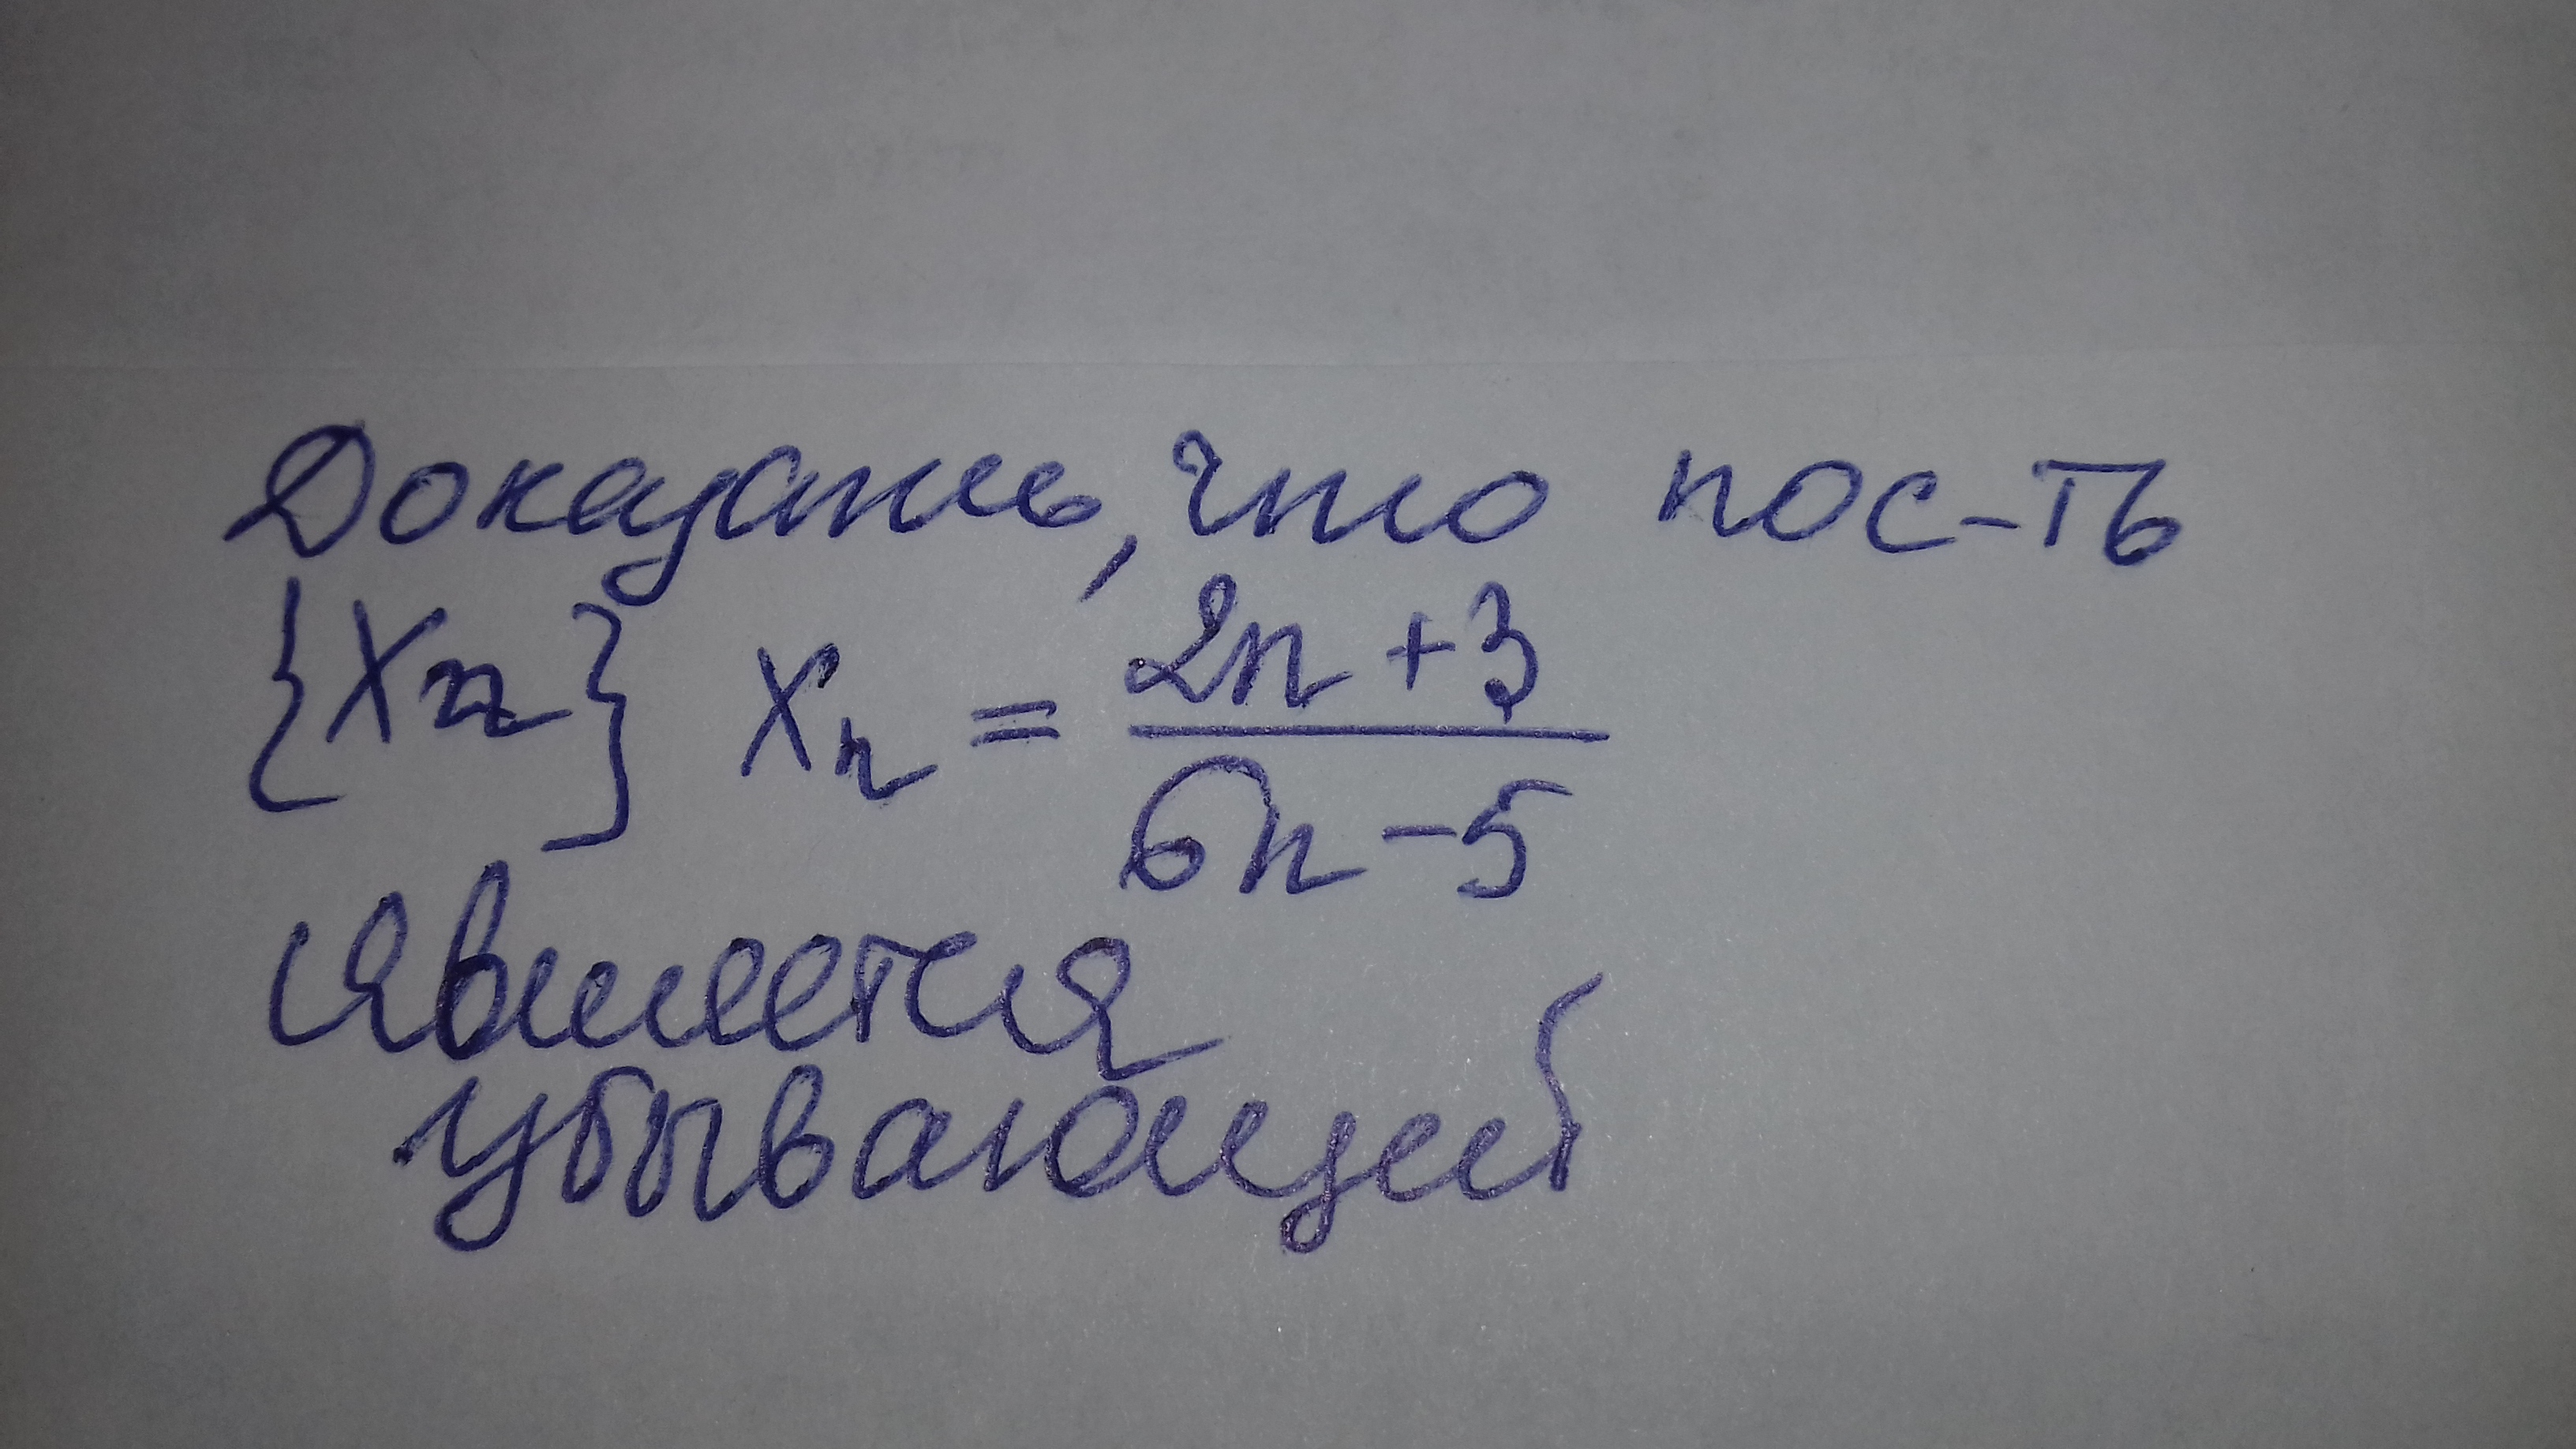 Доказать, что пос-ть
{Xn} Xn = \frac{2n+3}{6n-5}
является
убывающей